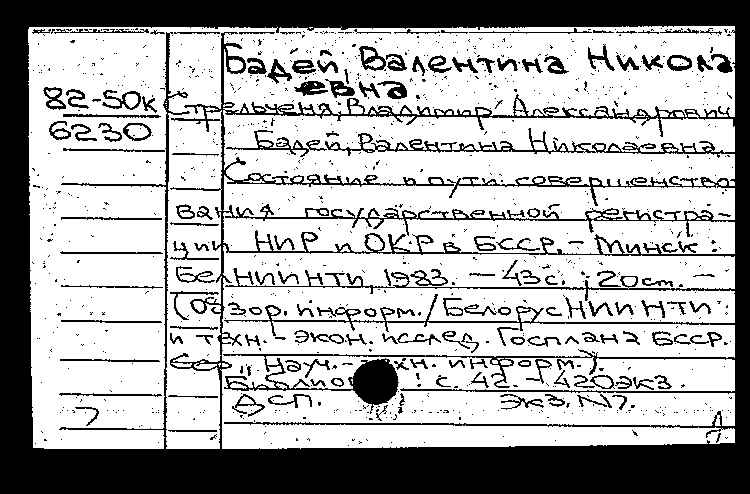 Бадей, Валентина Никола
евна.
82-50к Стрельченя, Владимир Александрович,
6230 Бадей, Валентина Николаевна.
Состояние и пути совершенство-
вания государственной регистра-
ции НИР и ОКР в БССР. – Минск:
БелНИИНТИ, 1983. – 43 с.; 20 см. –
(Обзор. информ. / Белорус НИИ НТИ
и техн.-экон. исслед. Госплана БССР.
Сер., Науч.-техн. информ.).
с. 42. – 420 экз.
ДСП. экз. №7.